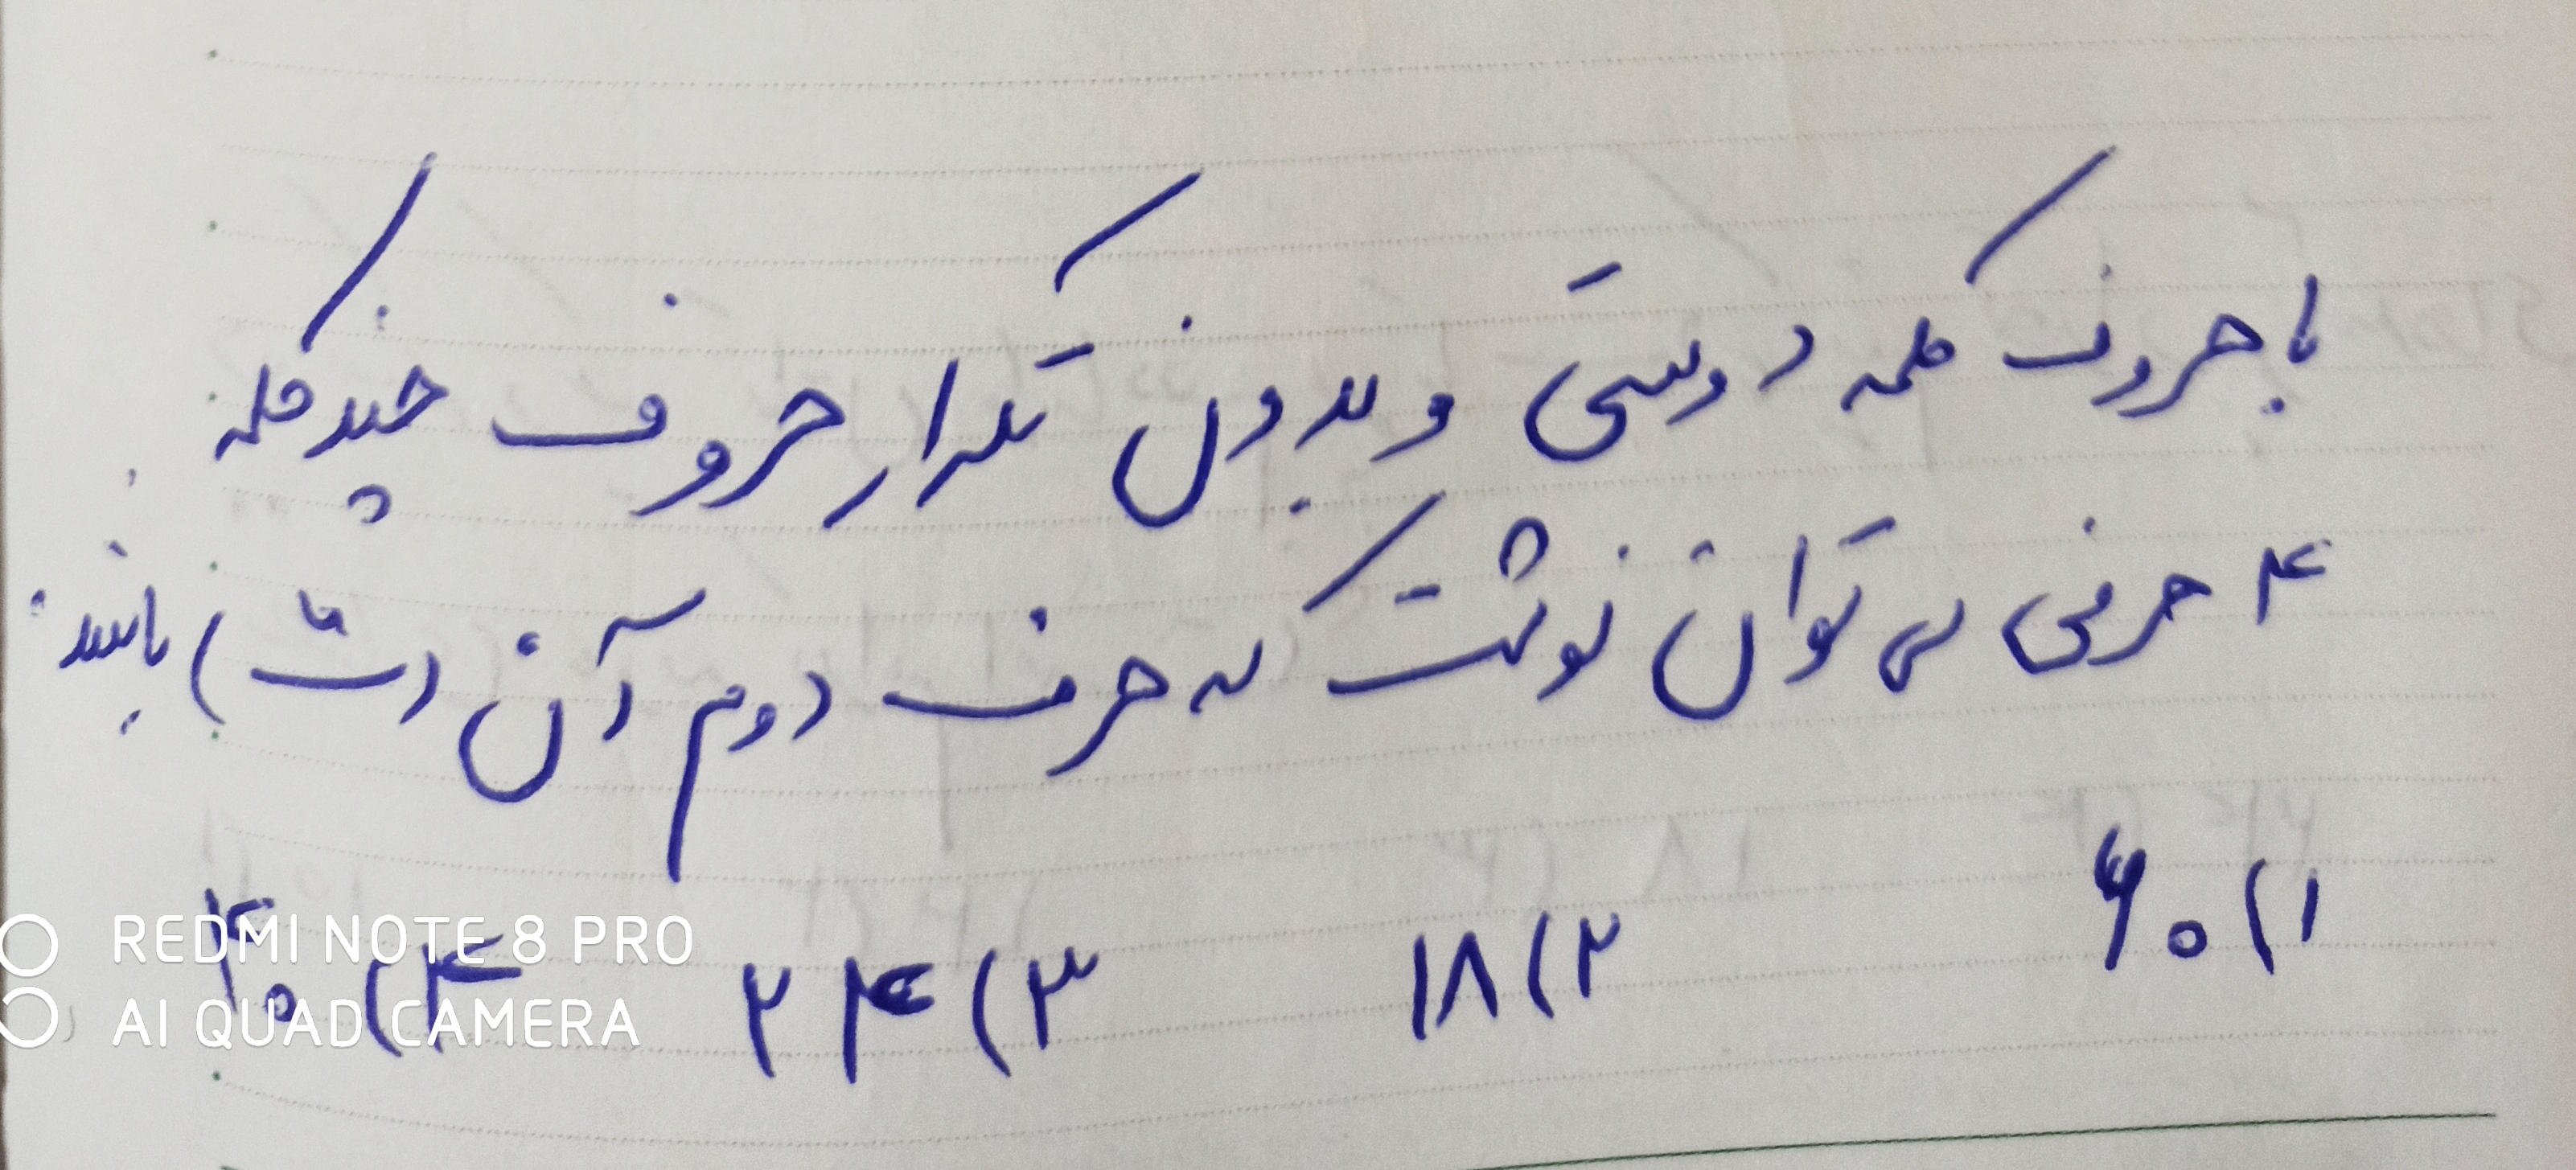 با حروف کلمه دوستی و بدون تکرار حروف چند کلمه
۴ حرفی می توان نوشت که حرف دوم آن (ت) باشد:
۱) ۶۰ ۲) ۱۸ ۳) ۲۴ ۴) ۴۰
REDMI NOTE 8 PRO
AI QUAD CAMERA